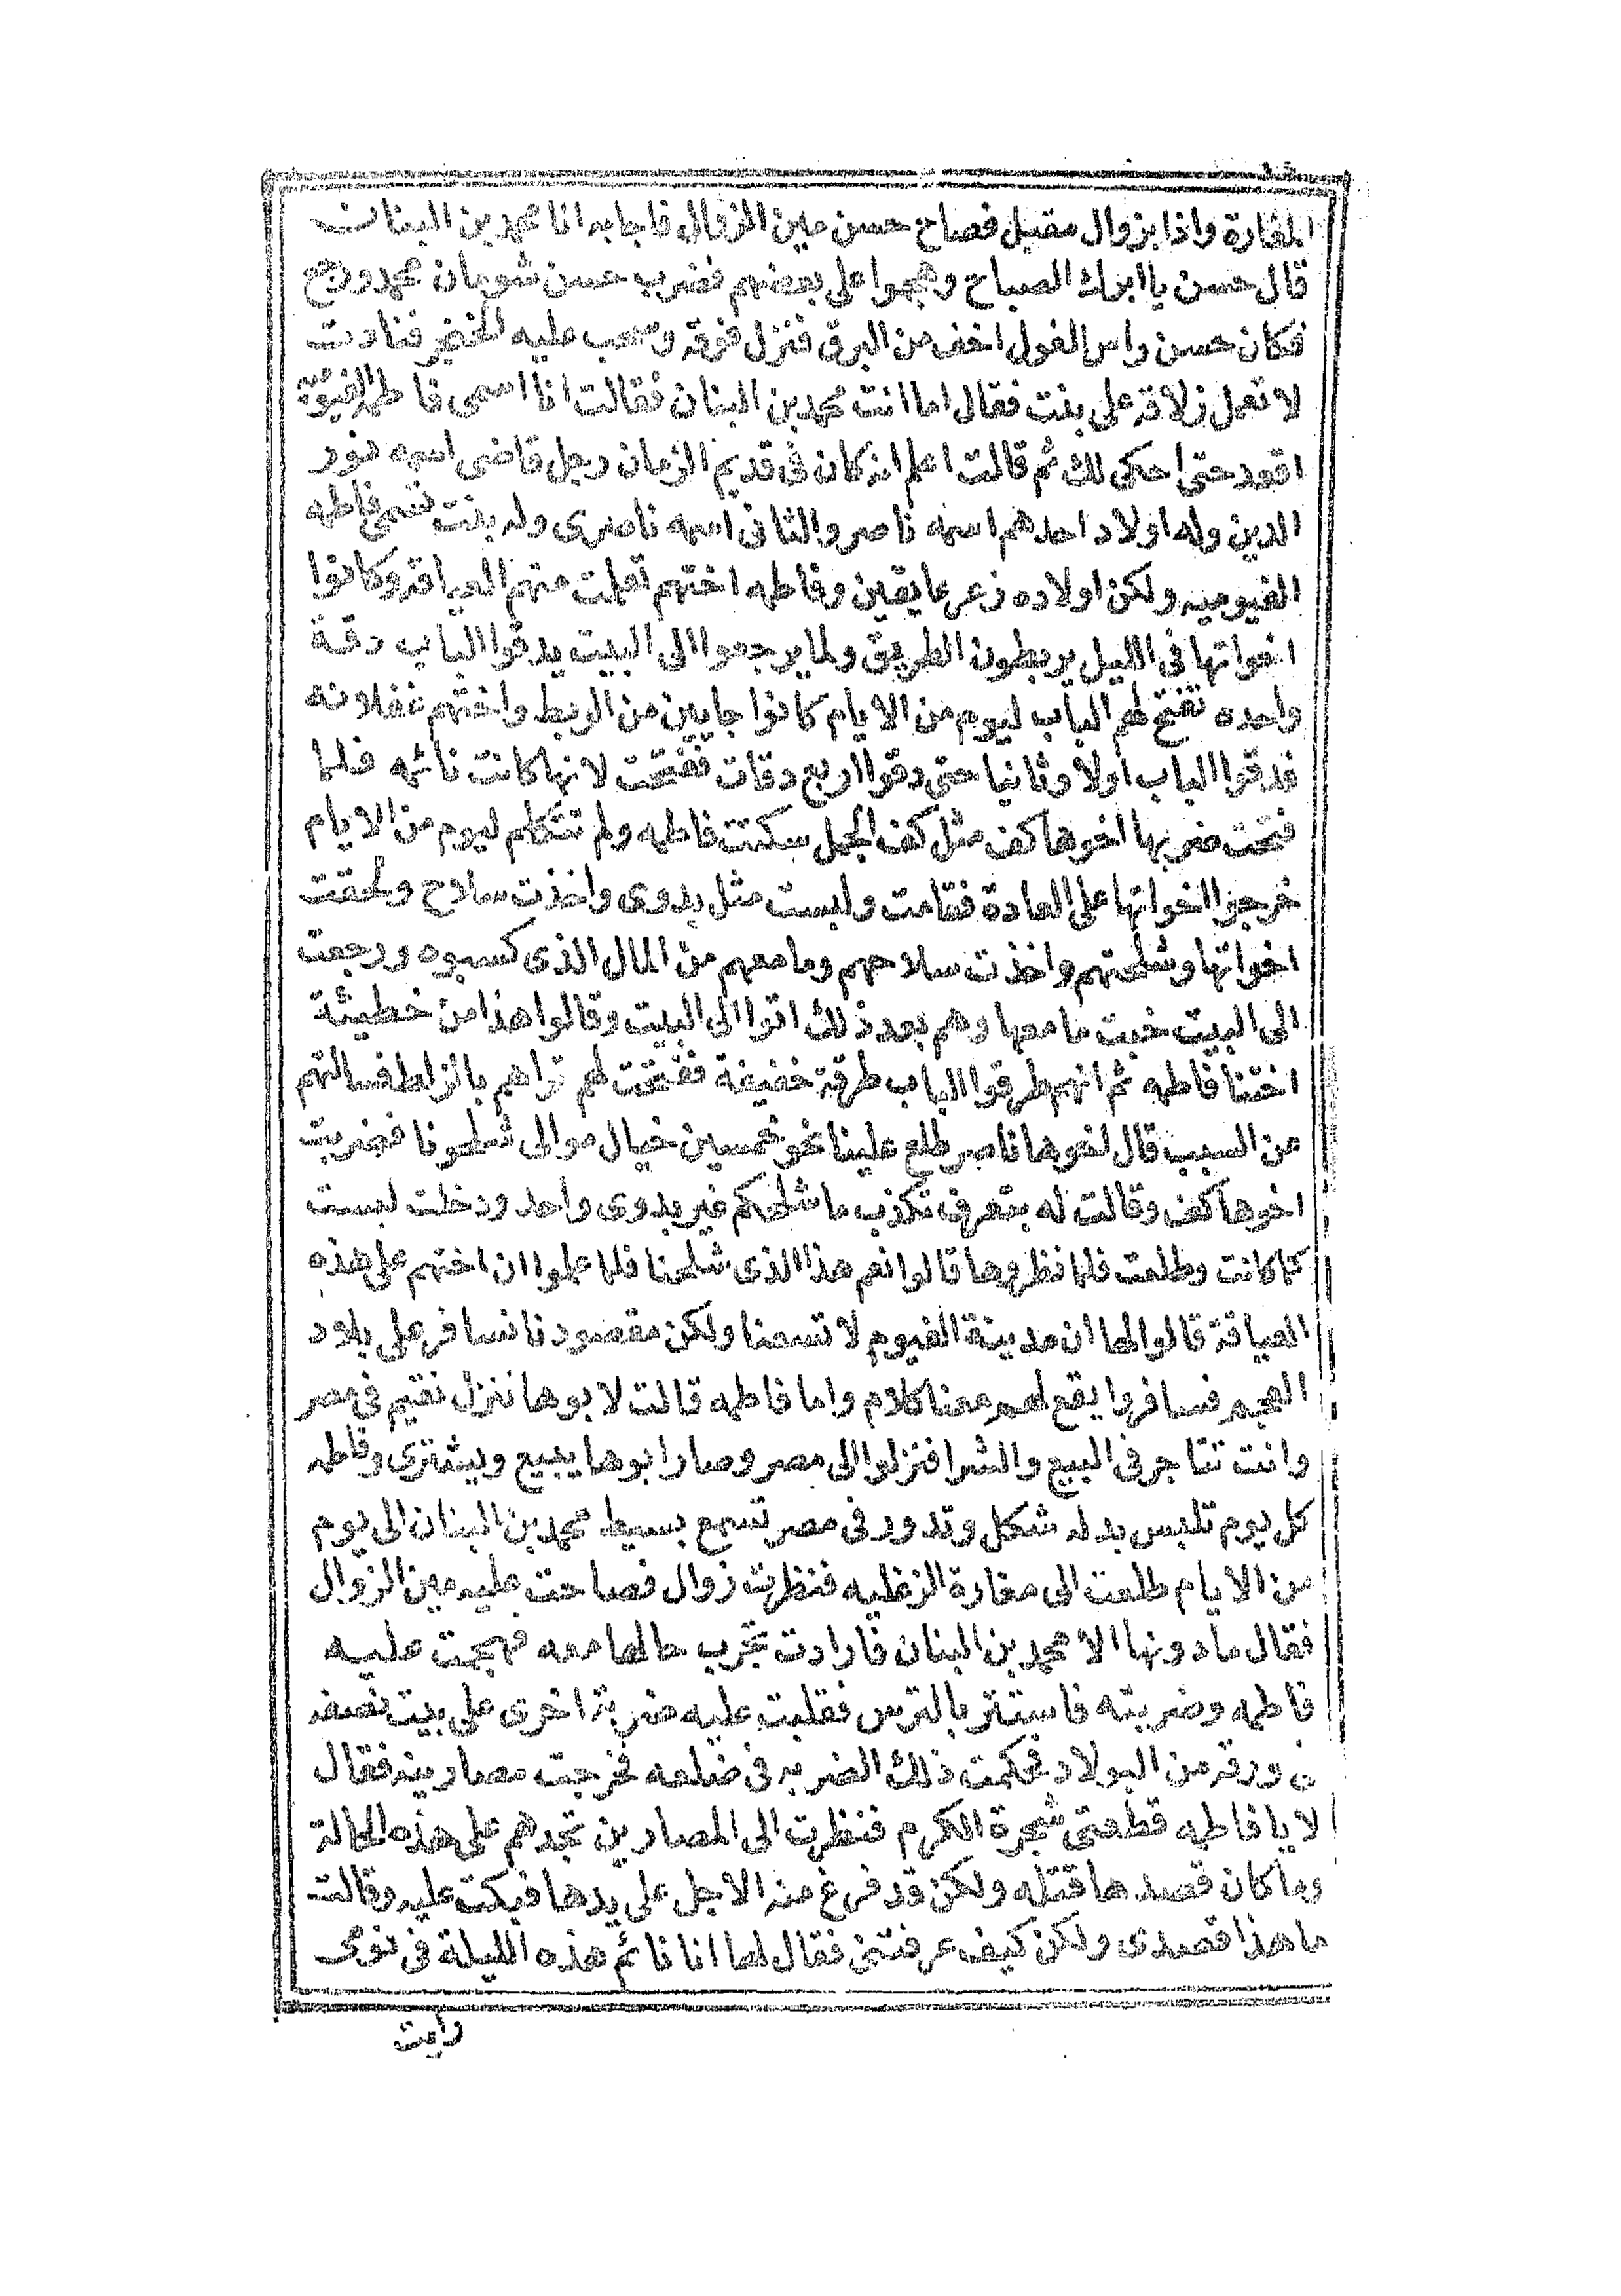 المغارة واذا بزوال مقبل فصاح حسن مين الزوال فاجابه انا محمد بن البنان
قال حسن يا ابرك الصباح وهجموا على بعضهم فضرب حسن شومان محمد ورجع
فكان حسن راس الغول اخف من البرق فنزل فوقه وسحب عليه الخنجر فنادت
لا تعمل زلاقه على بنت فقال اما انت محمد بن البنان فقالت انا اسمى فاطمه الفيوميه
اقعد حتى احكى لك ثم قالت اعلم انه كان فى قديم الزمان رجل قاضى اسمه نور
الدين وله اولاد احدهم اسمه ناصر والثانى اسمه ناصرى وله بنت تسمى فاطمه
الفيوميه ولكن اولاده زعر عايقين وفاطمه اختهم تعلمت منهم العياقه وكانوا
اخواتها فى الليل يربطون الطريق ولما يرجعوا الى البيت يدقوا الباب دقة
واحده تفتح لهم الباب ليوم من الايام كانوا جايين من الربط واختهم غفلانه
فدقوا الباب اولا وثانيا حتى دقوا اربع دقات ففتحت لانها كانت نائمه فلما
فتحت ضربها اخوها كف مثل كف الجمل سكتت فاطمه ولم تتكلم ليوم من الايام
خرجوا اخواتها على العادة فقامت ولبست مثل بدوى واخذت سلاح ولحقت
اخواتها وشلحتهم واخذت سلاحهم وما معهم من المال الذى كسبوه ورجعت
الى البيت خبت ما معها وهم بعد ذلك اتوا الى البيت وقالوا هذا من خطيئة
اختنا فاطمه ثم انهم طرقوا الباب طرقه خفيفة ففتحت لهم تراهم بالزلط فسالتهم
من السبب قال اخوها ناصر طلع علينا نحو خمسين خيال موالى شلحونا فضربت
اخوها كف وقالت له بتعرف تكذب ما شلحكم غير بدوى واحد ودخلت لبست
كما كانت وطلعت فلما نظروها قالوا نعم هذا الذى شلحنا فلما علموا ان اختهم على هذه
العياقة قالوا لها ان مدينة الفيوم لا تسعنا ولكن مقصودنا نسافر على بلاد
العجم فسافروا يقع لهم معنا كلام واما فاطمه قالت لابوها ننزل نقيم فى مصر
وانت تتاجر فى البيع والشرا فنزلوا الى مصر وصار ابوها يبيع ويشترى وفاطمه
كل يوم تلبس بدله شكل وتدور فى مصر تسمع بسيط محمد بن البنان الى يوم
من الايام طلعت الى مغارة الزغليه فنظرت زوال فصاحت عليه مين الزوال
فقال ما دونها الا محمد بن البنان فارادت تجرب حالها معه فهجمت عليه
فاطمه وضربته فاستتر بالترس فقلبت عليه ضربة اخرى على بيت نصفه
ن ورقه من البولاد فحكمت ذلك الضربه فى ضلعه فخرجت مصارينه فقال
لا يا فاطمه قطعتى شجرة الكرم فنظرت الى المصارين تجدهم على هذه الحالة
وما كان قصدها قتله ولكن قد فرغ منه الاجل على يدها فبكت عليه وقالت
ما هذا قصدى ولكن كيف عرفتنى فقال لها انا نائم هذه الليلة فى نومى
رايت